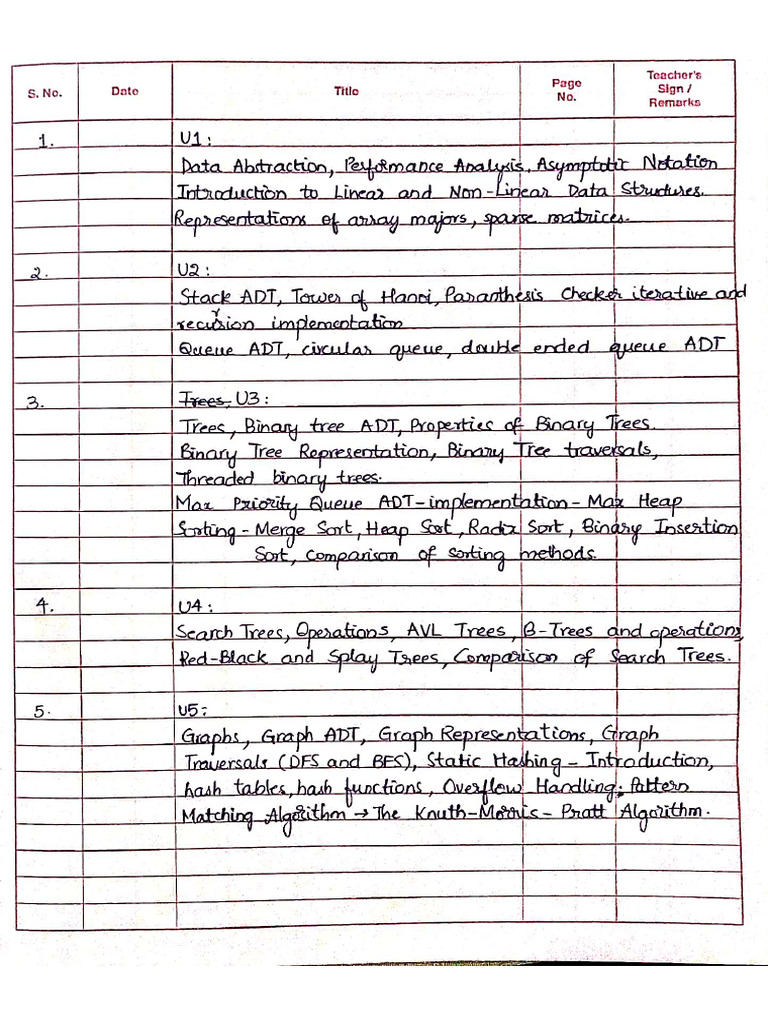 S. No. Date Title Page No. Teacher's Sign / Remarks
1. U1:
Data Abstraction, Performance Analysis, Asymptotic Notation
Introduction to Linear and Non-Linear Data Structures.
Representations of array majors, sparse matrices.
2. U2:
Stack ADT, Tower of Hanoi, Paranthesis Checker iterative and
recursion implementation
Queue ADT, circular queue, double ended queue ADT
3. Trees, U3:
Trees, Binary tree ADT, Properties of Binary Trees.
Binary Tree Representation, Binary Tree traversals,
Threaded binary trees.
Max Priority Queue ADT-implementation-Max Heap
Sorting - Merge Sort, Heap Sort, Radix Sort, Binary Insertion
Sort, comparison of sorting methods.
4. U4:
Search Trees, Operations, AVL Trees, B-Trees and operations,
Red-Black and Splay Trees, Comparison of Search Trees.
5. U5:
Graphs, Graph ADT, Graph Representations, Graph
Traversals (DFS and BFS), Static Hashing - Introduction,
hash tables, hash functions, Overflow Handling; Pattern
Matching Algorithm → The Knuth-Morris-Pratt Algorithm.